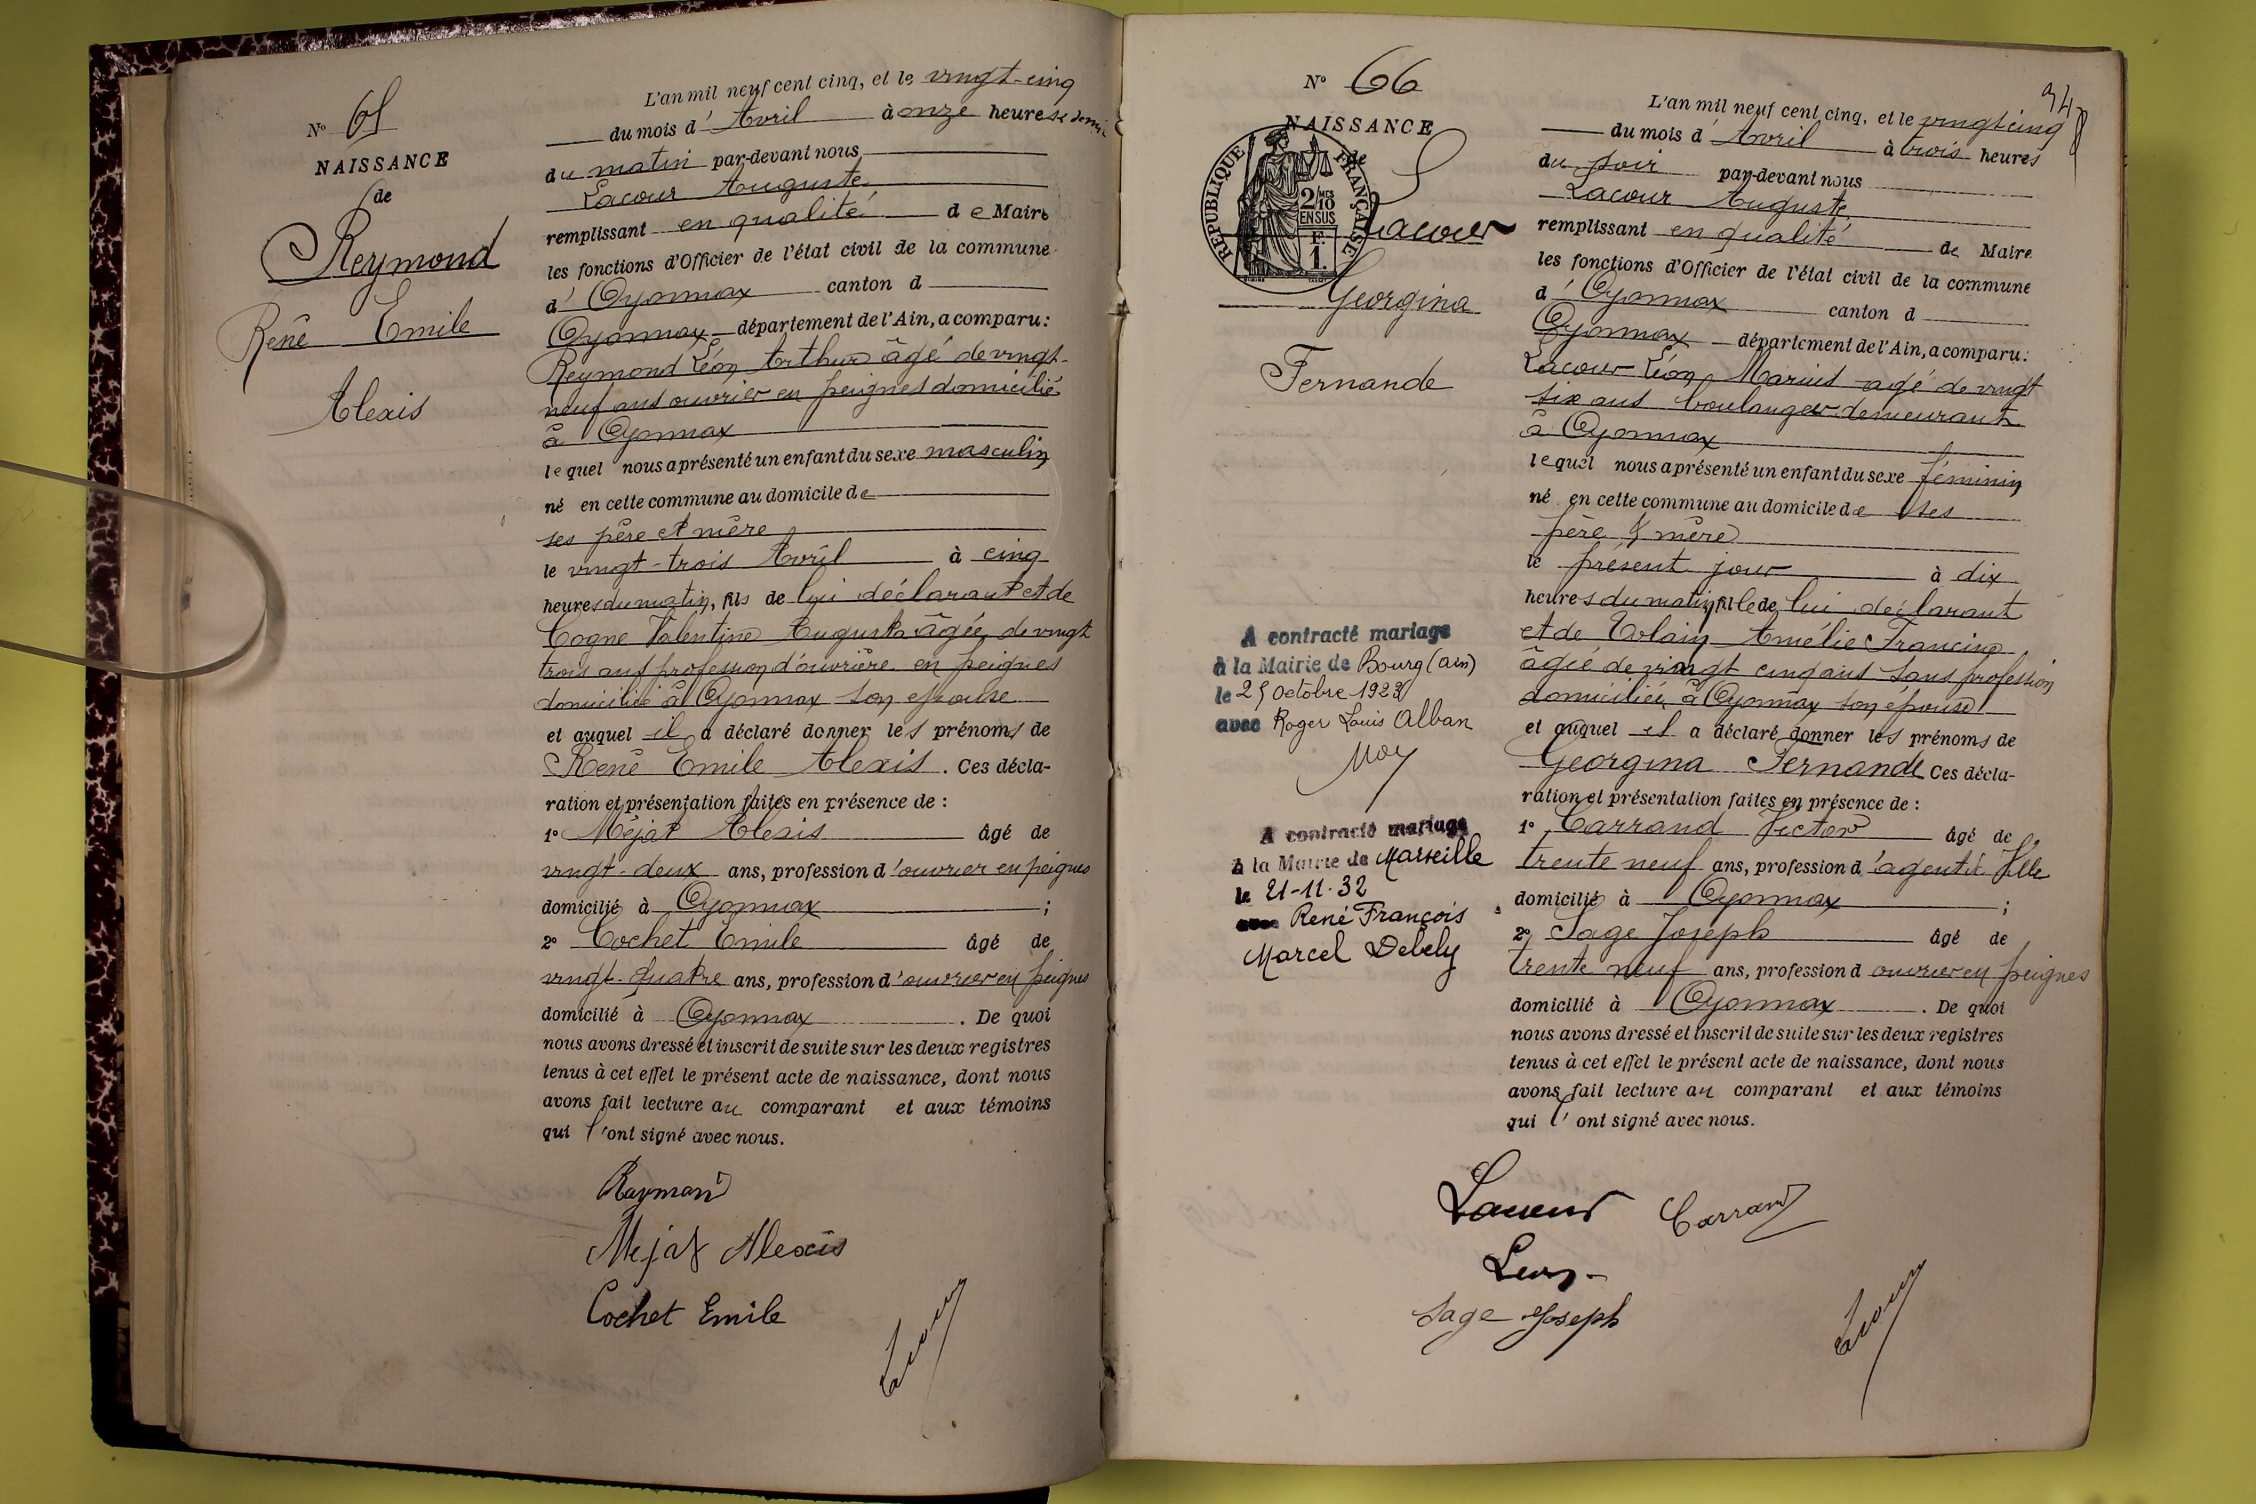 N° 65
NAISSANCE
de
Reymond
René Emile
Alexis
L'an mil neuf cent cinq, et le vingt-cinq
du mois d' Avril à onze heures & demie
du matin par-devant nous
Lacour Auguste
remplissant en qualité de Maire
les fonctions d'Officier de l'état civil de la commune
d' Oyonnax canton d
Oyonnax département de l'Ain, a comparu:
Reymond Léon Arthur âgé de vingt-
neuf ans ouvrier en peignes domicilié
à Oyonnax
lequel nous a présenté un enfant du sexe masculin
né en cette commune au domicile de
ses père et mère
le vingt-trois Avril à cinq
heures du matin, fils de lui déclarant et de
Cogne Valentine Augusta âgée de vingt
trois ans profession d'ouvrière en peignes
domiciliée à Oyonnax son épouse
et auquel il a déclaré donner les prénoms de
René Emile Alexis. Ces décla-
ration et présentation faites en présence de :
1° Méjat Alexis âgé de
vingt-deux ans, profession d'ouvrier en peignes
domicilié à Oyonnax ;
2° Cochet Emile âgé de
vingt-quatre ans, profession d'ouvrier en peignes
domicilié à Oyonnax . De quoi
nous avons dressé et inscrit de suite sur les deux registres
tenus à cet effet le présent acte de naissance, dont nous
avons fait lecture au comparant et aux témoins
qui l'ont signé avec nous.
Raymond
Mejat Alexis
Cochet Emile
Lacour
N° 66
NAISSANCE
de
REPUBLIQUE FRANÇAISE
2/10 MES
EN SUS
F.
1.
Lacour
Georgina
Fernande
A contracté mariage
à la Mairie de Bourg (Ain)
le 25 octobre 1923
avec Roger Louis Alban
Moy
A contracté mariage
à la Mairie de Marseille
le 21-11-32
avec René François
Marcel Debely
L'an mil neuf cent cinq, et le vingt cinq
du mois d' Avril à trois heures
du soir par-devant nous
Lacour Auguste
remplissant en qualité de Maire
les fonctions d'Officier de l'état civil de la commune
d' Oyonnax canton d
Oyonnax département de l'Ain, a comparu:
Lacour Léon Marius agé de vingt
six ans boulanger demeurant
à Oyonnax
lequel nous a présenté un enfant du sexe féminin
né en cette commune au domicile de ses
père & mère
le présent jour à dix
heures du matin, fille de lui déclarant
et de Amélie Francine
âgée de vingt cinq ans sans profession
domiciliée à Oyonnax son épouse
et auquel il a déclaré donner les prénoms de
Georgina Fernande Ces décla-
ration et présentation faites en présence de :
1° Carrand Victor âgé de
trente neuf ans, profession d'agent de Ville
domicilié à Oyonnax ;
2° Sage Joseph âgé de
trente neuf ans, profession d ouvrier en peignes
domicilié à Oyonnax . De quoi
nous avons dressé et inscrit de suite sur les deux registres
tenus à cet effet le présent acte de naissance, dont nous
avons fait lecture au comparant et aux témoins
qui l'ont signé avec nous.
Lacour Carrand
Léon
Sage Joseph
Lacour